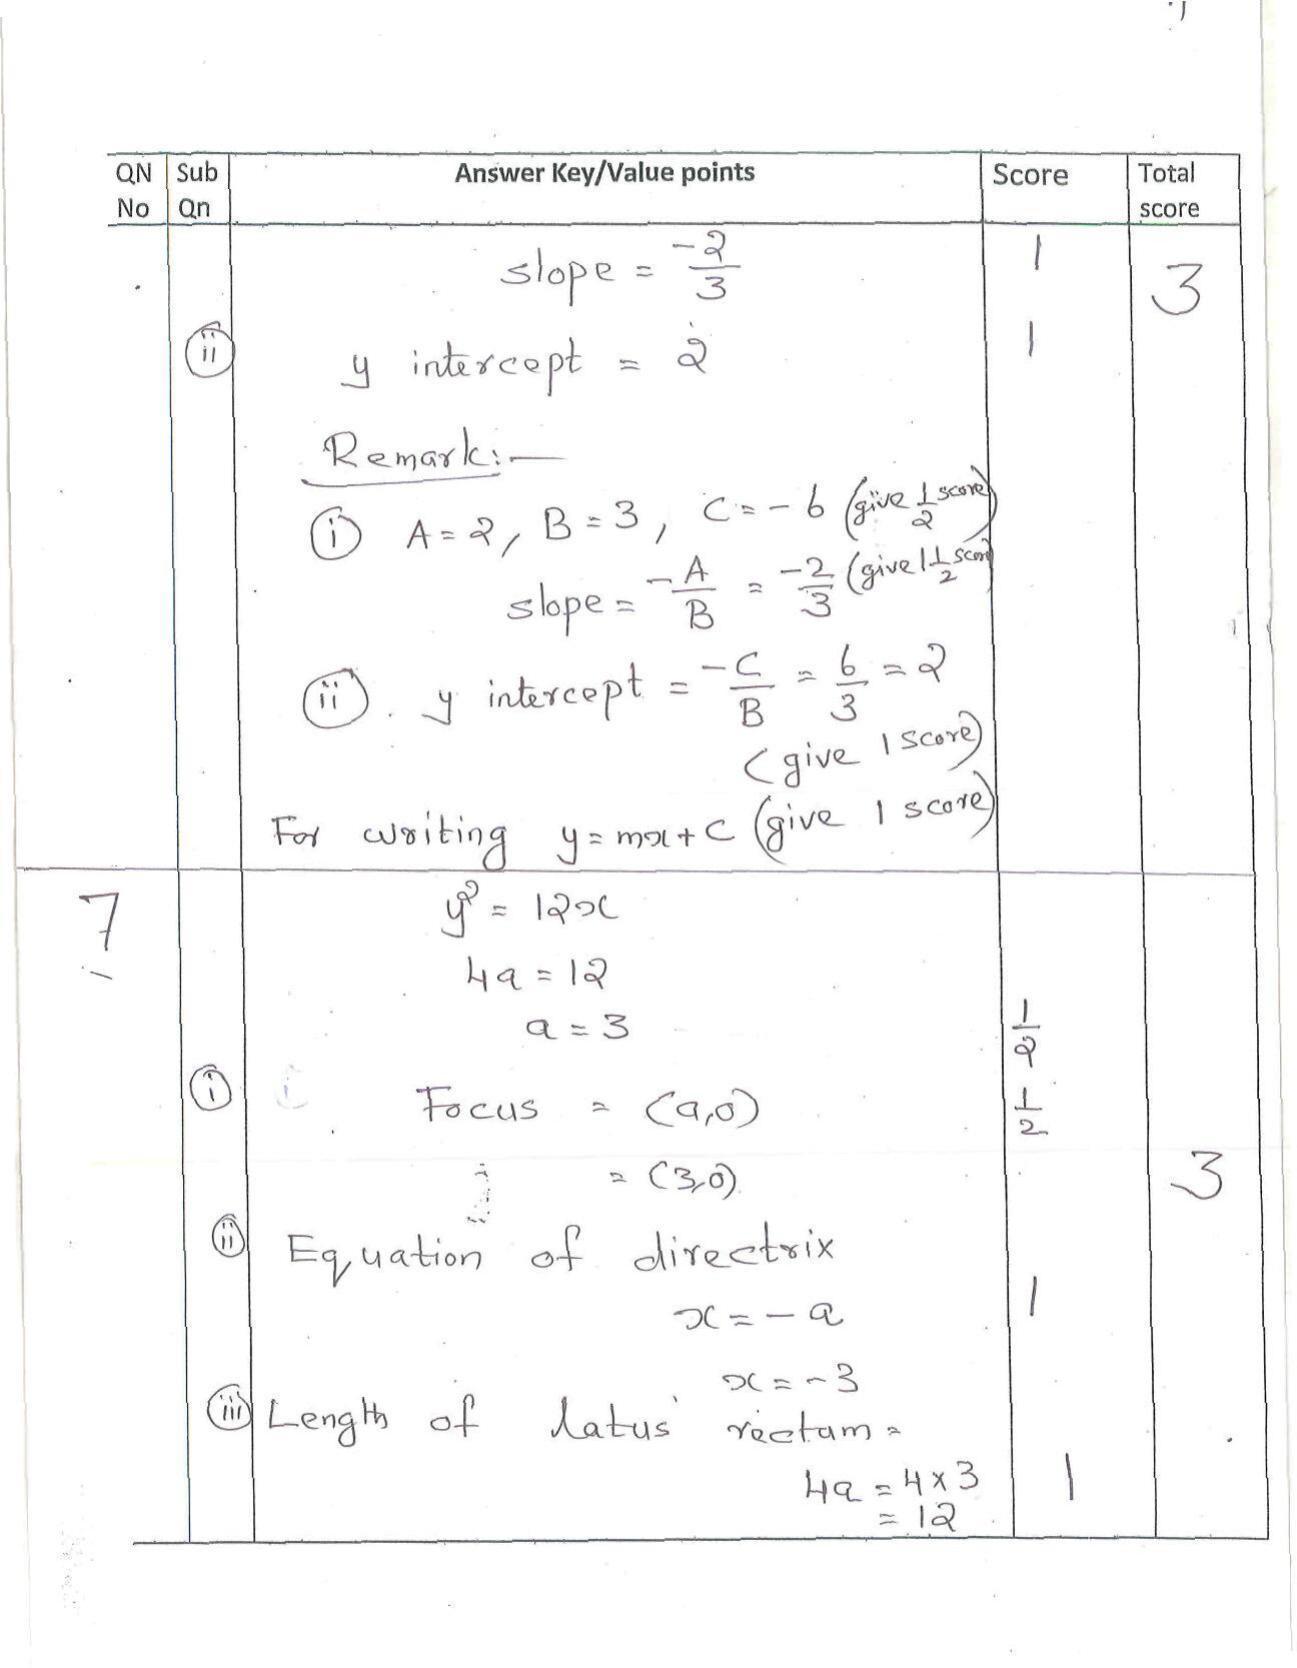 QN No Sub Qn Answer Key/Value points Score Total score
slope = -2/3 1 3
(ii) y intercept = 2 1
Remark:-
(i) A=2, B=3, C=-6 (give 1/2 score)
slope = -A/B = -2/3 (give 1 1/2 score)
(ii). y intercept = -C/B = 6/3 = 2
(give 1 score)
For writing y=mx+C (give 1 score)
7 y² = 12x
4a = 12
a = 3 1/2
(i) Focus = (a,0) 1/2
= (3,0) 3
(ii) Equation of directrix
x = -a 1
x = -3
(iii) Length of latus rectum =
4a = 4×3 1
= 12